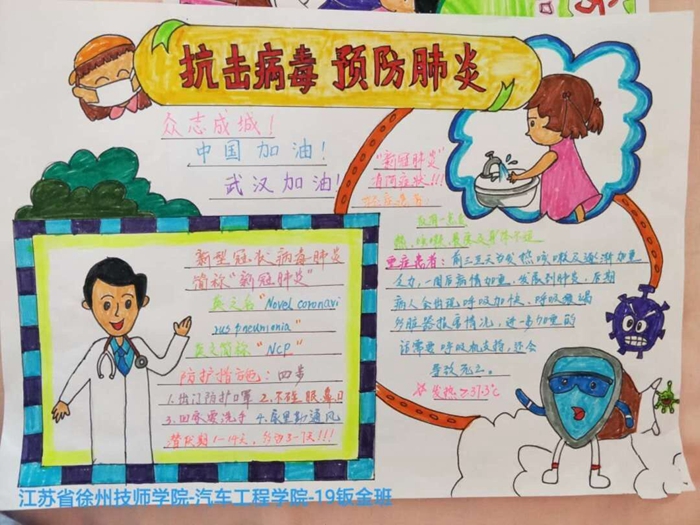 抗击病毒 预防肺炎
众志成城！
中国加油！
武汉加油！
新型冠状病毒肺炎
简称"新冠肺炎"
英文名"Novel coronavi
rus pneumonia"
英文简称"NCP"
防护措施：四步
1.出门防护口罩 2.不碰眼鼻口
3.回家要洗手 4.家里勤通风
潜伏期1-14天，多为3-7天!!!
"新冠肺炎"
有何症状!!!
重症患者：前三五天为发热咳嗽及逐渐加重
乏力，一周后病情加重，发展到肺炎，后期
病人会出现呼吸加快、呼吸衰竭
多脏器损害情况，进一步加重的
话需要呼吸机支持，还会
导致死亡。
发热≥37.3℃
江苏省徐州技师学院-汽车工程学院-19钣金班